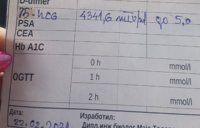 D-dimer
B-HCG 4341,6 mlU/ml до 5,0
PSA
CEA
Hb A1C
0 h mmol/l
OGTT 1 h mmol/l
2 h mmol/l
Изработил:
22.02.2021 Дипл.инж биолог Maja